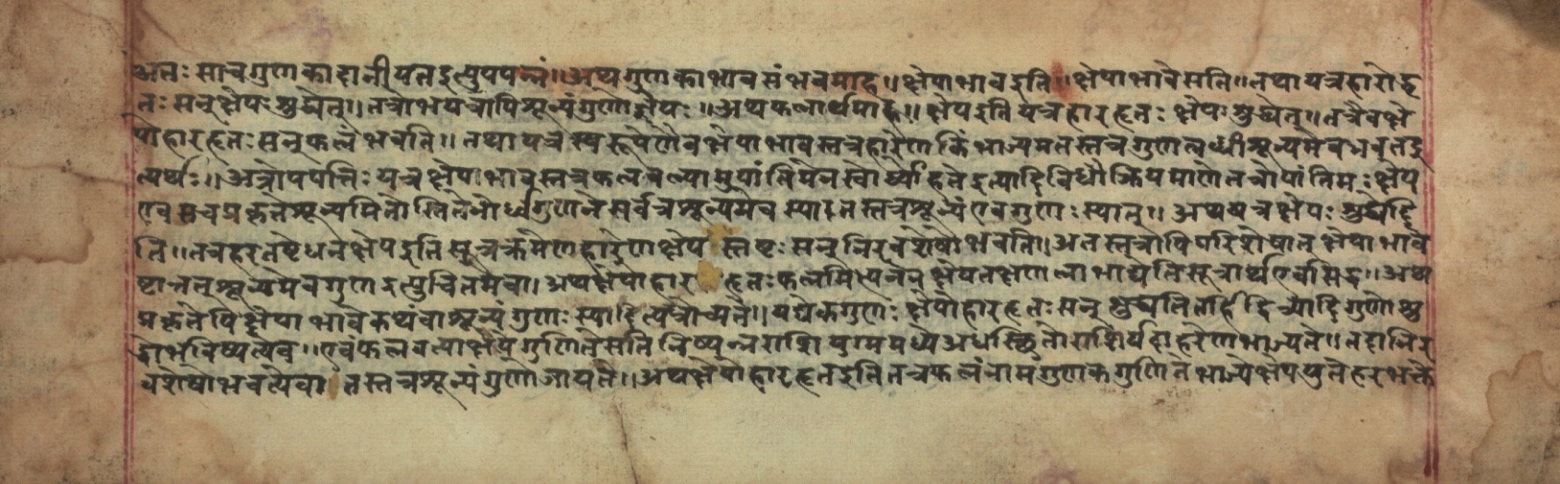 अतः सा च गुणकादानीयत इत्युपपन्नं।। अथ गुणकाभाव संभवमाह।। क्षेपाभाव इति।। क्षेपाभावे सति।। तथा यत्र हारोद्धृ
तः सन् क्षेपः शुद्ध्येत्।। तत्रोभयत्रापि शून्यं गुणो ज्ञेयः।। अथ फलार्थमाह।। क्षेप इति यत्र हारहृतः क्षेपः शुद्ध्येत्।। तत्रैव क्षे
पो हारहृतः सन् फलं भवति।। तथा यत्र स्वरूपेणैव क्षेपाभाव स्तत्र हारेण किं भाज्यमत स्तत्र गुणलब्धी शून्यमेव भवत इ
त्यर्थः।। अत्रोपपत्तिः यत्र क्षेपाभाव स्तत्र फलवल्यामुपांतिमेन स्वोर्ध्वे हते इत्यादि विधौ क्रियमाणे तत्रोपांतिमः क्षेप
एव स च प्रकृते शून्यमितोस्ति तेनोर्ध्वगुणने सर्वत्र शून्यमेव स्यादत स्तत्र शून्यं एव गुणः स्यात्।। अथ यत्र क्षेपः शुद्ध्येदि
ति।। तत्र हरतष्टे धनक्षेप इति सूत्रक्रमेण हारेण क्षेप स्तष्टः सन् निरवशेषो भवति। अत स्तत्रापि परिशेषात् क्षेपाभावे
ष्टानत् शून्यमेव गुण इत्युचितमेव। अथ क्षेपो हार हृतः फलमित्येतत् क्षेपतक्षणलाभाढ्येति सूत्रार्थ एव सिद्धं।। अथ
प्रकृतेपि क्षेपाभावे कथं वा शून्यं गुणः स्यादित्यत्रोच्यते।। यद्येकगुणः क्षेपो हारहृतः सन् शुद्ध्यति तर्हि द्वित्र्यादि गुणो शु
द्धो भविष्यत्येव।। एवं फलवल्यां क्षेप गुणिते सति निष्पन्नराशि युग्ममध्ये अधस्थितो राशिर्यदा हरेण भाज्यते।। तदा निर
वशेषो भवत्येव। तस्तत्र शून्यं गुणो जायते।। अथ क्षेपो हारहृत इति तत्र फलं नाम गुणकगुणिते भाज्ये क्षेपयुते हरभक्ते